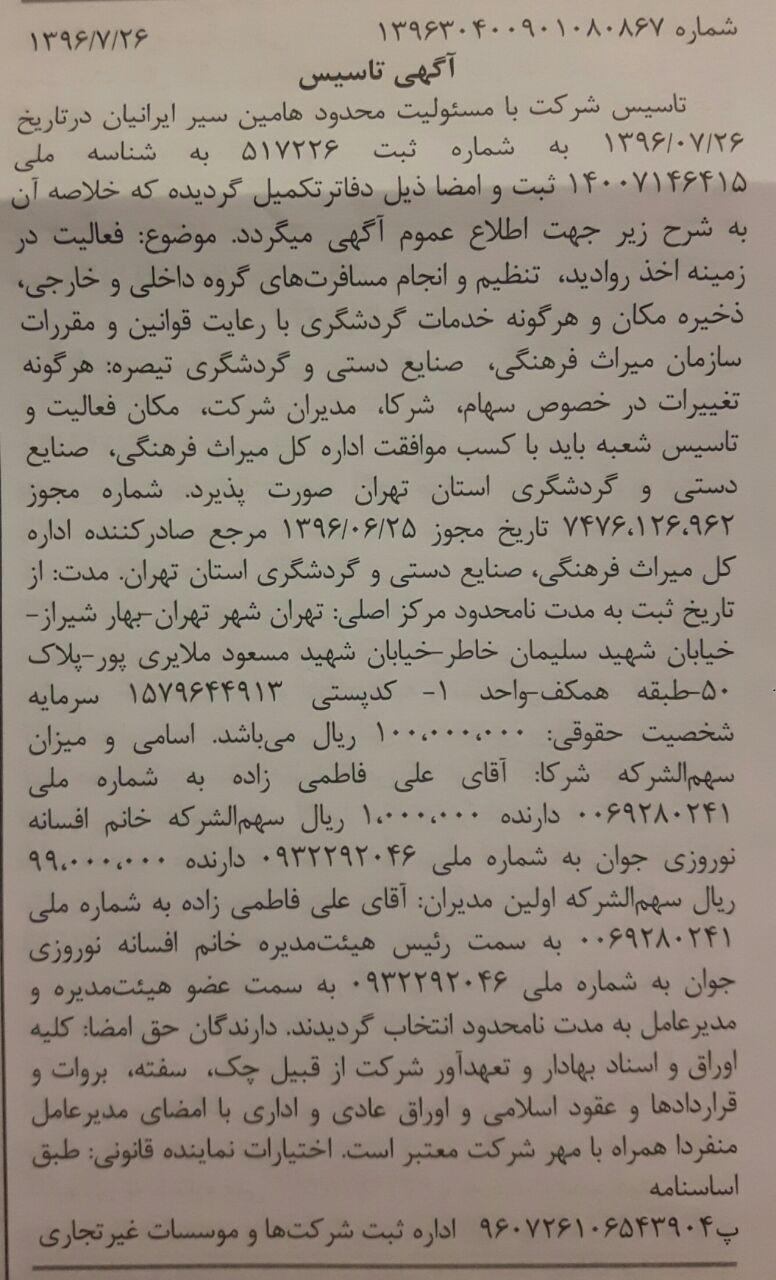 شماره ۱۳۹۶۳۰۴۰۰۹۰۱۰۸۰۸۶۷ ۱۳۹۶/۷/۲۶
آگهی تاسیس
تاسیس شرکت با مسئولیت محدود هامین سیر ایرانیان درتاریخ
۱۳۹۶/۰۷/۲۶ به شماره ثبت ۵۱۷۲۲۶ به شناسه ملی
۱۴۰۰۷۱۴۶۴۱۵ ثبت و امضا ذیل دفاترتکمیل گردیده که خلاصه آن
به شرح زیر جهت اطلاع عموم آگهی میگردد. موضوع: فعالیت در
زمینه اخذ روادید، تنظیم و انجام مسافرت‌های گروه داخلی و خارجی،
ذخیره مکان و هرگونه خدمات گردشگری با رعایت قوانین و مقررات
سازمان میراث فرهنگی، صنایع دستی و گردشگری تیصره: هرگونه
تغییرات در خصوص سهام، شرکا، مدیران شرکت، مکان فعالیت و
تاسیس شعبه باید با کسب موافقت اداره کل میراث فرهنگی، صنایع
دستی و گردشگری استان تهران صورت پذیرد. شماره مجوز
۷۴۷۶،۱۲۶،۹۶۲ تاریخ مجوز ۱۳۹۶/۰۶/۲۵ مرجع صادرکننده اداره
کل میراث فرهنگی، صنایع دستی و گردشگری استان تهران. مدت: از
تاریخ ثبت به مدت نامحدود مرکز اصلی: تهران شهر تهران-بهار شیراز-
خیابان شهید سلیمان خاطر-خیابان شهید مسعود ملایری پور-پلاک
۵۰-طبقه همکف-واحد ۱- کدپستی ۱۵۷۹۶۴۴۹۱۳ سرمایه
شخصیت حقوقی: ۱۰۰،۰۰۰،۰۰۰ ریال می‌باشد. اسامی و میزان
سهم‌الشرکه شرکا: آقای علی فاطمی زاده به شماره ملی
۰۰۶۹۲۸۰۲۴۱ دارنده ۱،۰۰۰،۰۰۰ ریال سهم‌الشرکه خانم افسانه
نوروزی جوان به شماره ملی ۰۹۳۲۲۹۲۰۴۶ دارنده ۹۹،۰۰۰،۰۰۰
ریال سهم‌الشرکه اولین مدیران: آقای علی فاطمی زاده به شماره ملی
۰۰۶۹۲۸۰۲۴۱ به سمت رئیس هیئت‌مدیره خانم افسانه نوروزی
جوان به شماره ملی ۰۹۳۲۲۹۲۰۴۶ به سمت عضو هیئت‌مدیره و
مدیرعامل به مدت نامحدود انتخاب گردیدند. دارندگان حق امضا: کلیه
اوراق و اسناد بهادار و تعهدآور شرکت از قبیل چک، سفته، بروات و
قراردادها و عقود اسلامی و اوراق عادی و اداری با امضای مدیرعامل
منفردا همراه با مهر شرکت معتبر است. اختیارات نماینده قانونی: طبق
اساسنامه
پ۹۶۰۷۲۶۱۰۶۵۴۳۹۰۴ اداره ثبت شرکت‌ها و موسسات غیرتجاری